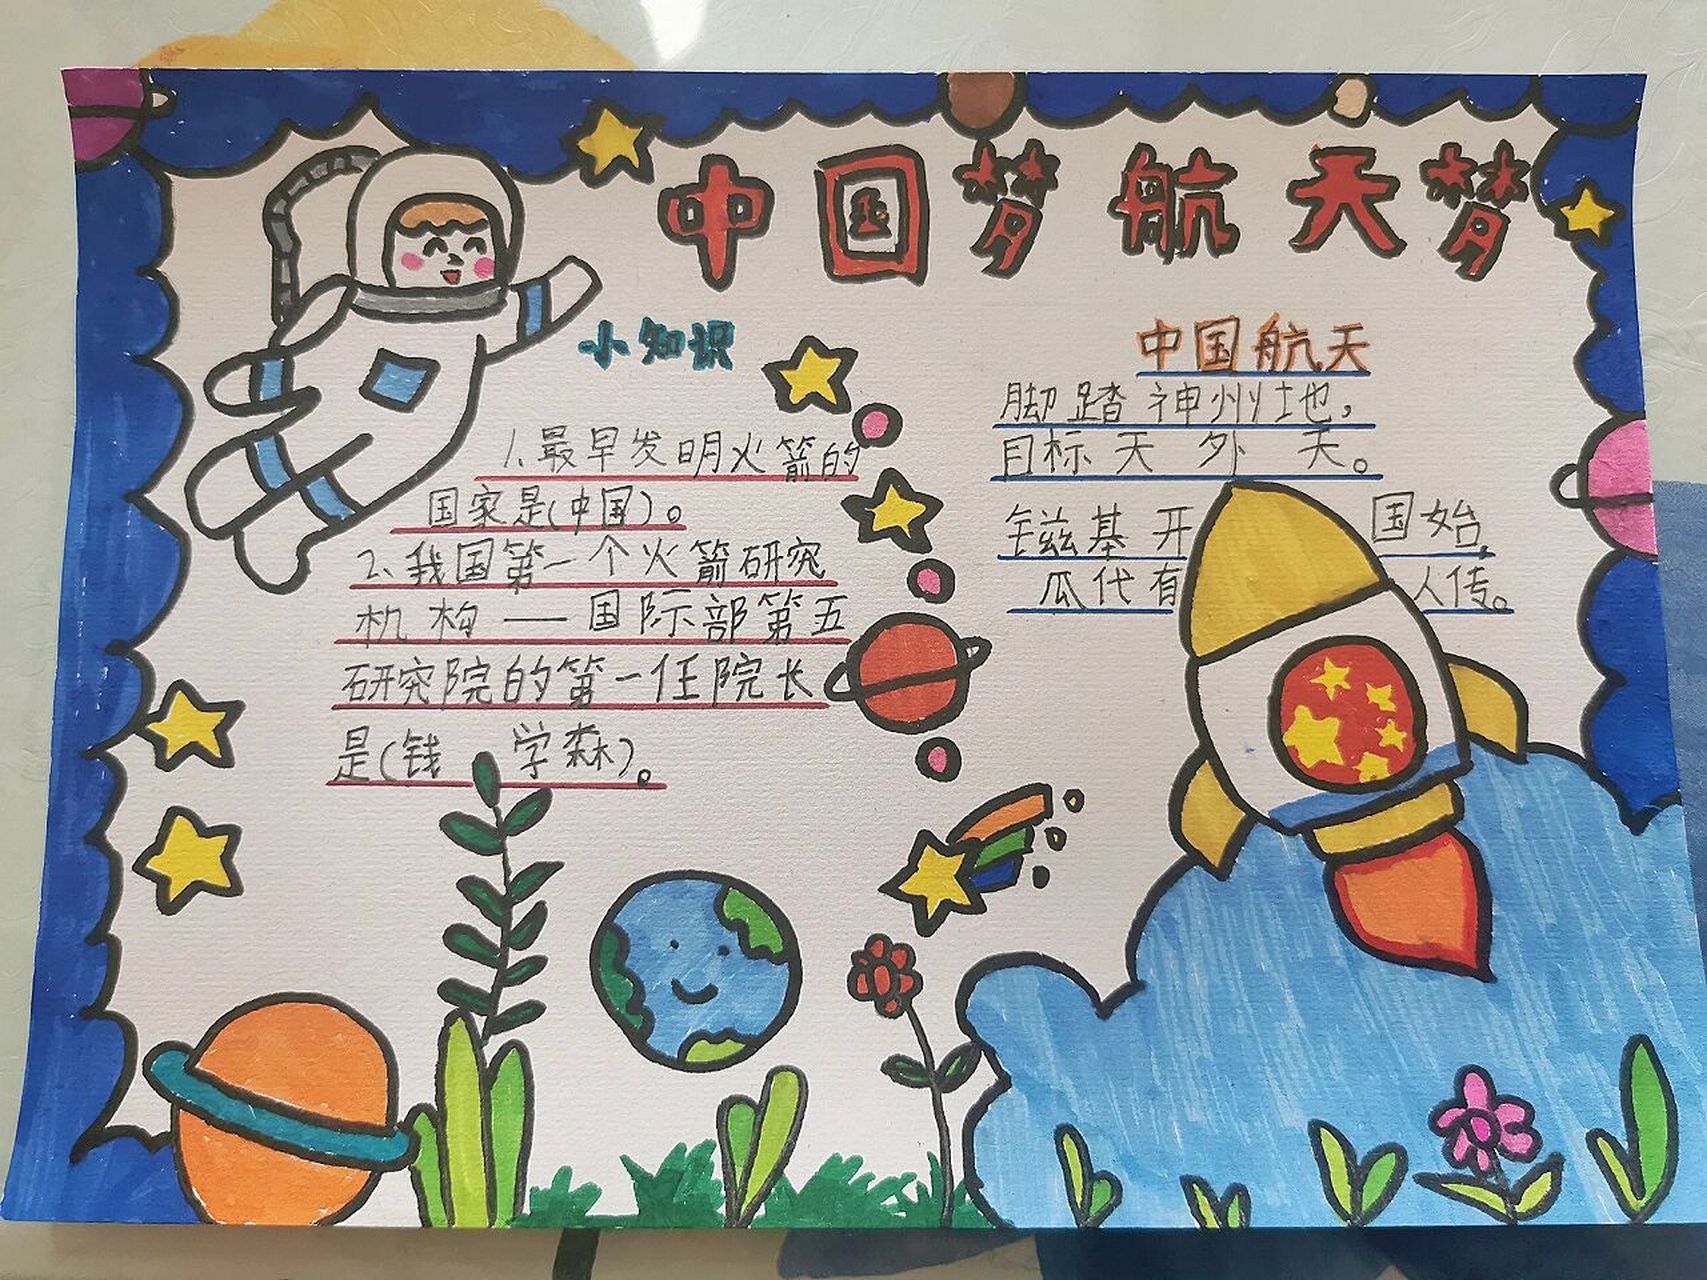 中国梦 航天梦
小知识
1、最早发明火箭的
国家是(中国)。
2、我国第一个火箭研究
机构——国际部第五
研究院的第一任院长
是(钱 学森)。
中国航天
脚踏神州大地，
目标天外天。
镃基开 国始，
瓜代有 人传。